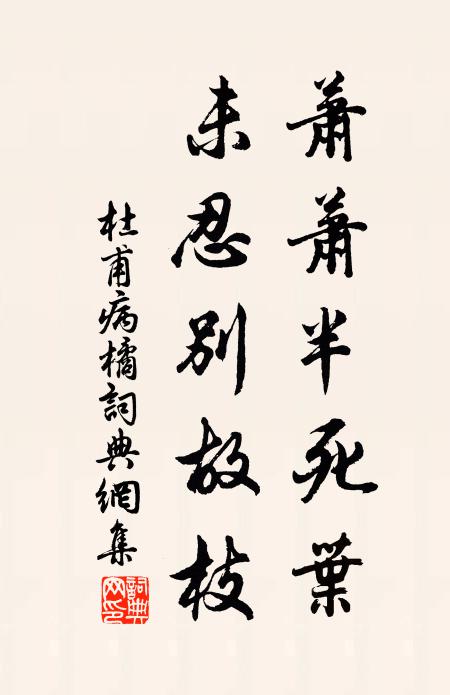 蕭蕭半死葉
未忍別故枝
杜甫病橘詞典網集
詞典
网印